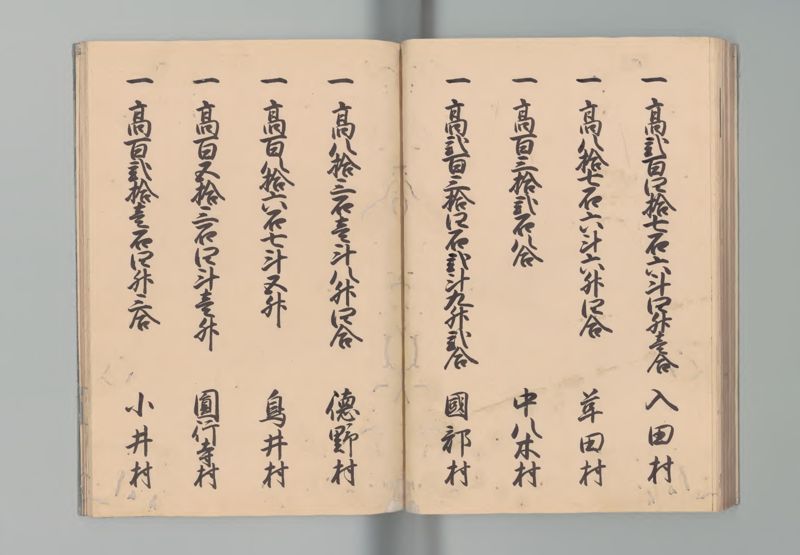 一 高弐百四拾七石六斗四升壱合 入田村
一 高八拾七石六斗六升四合 草田村
一 高百三拾弐石八合 中八木村
一 高弐百三拾四石弐斗九升弐合 國部村
一 高八拾三石壱斗八升四合 徳野村
一 高百八拾六石七斗五升 鳥井村
一 高百五拾三石四斗壱升 圓行寺村
一 高百弐拾壱石四升三合 小井村